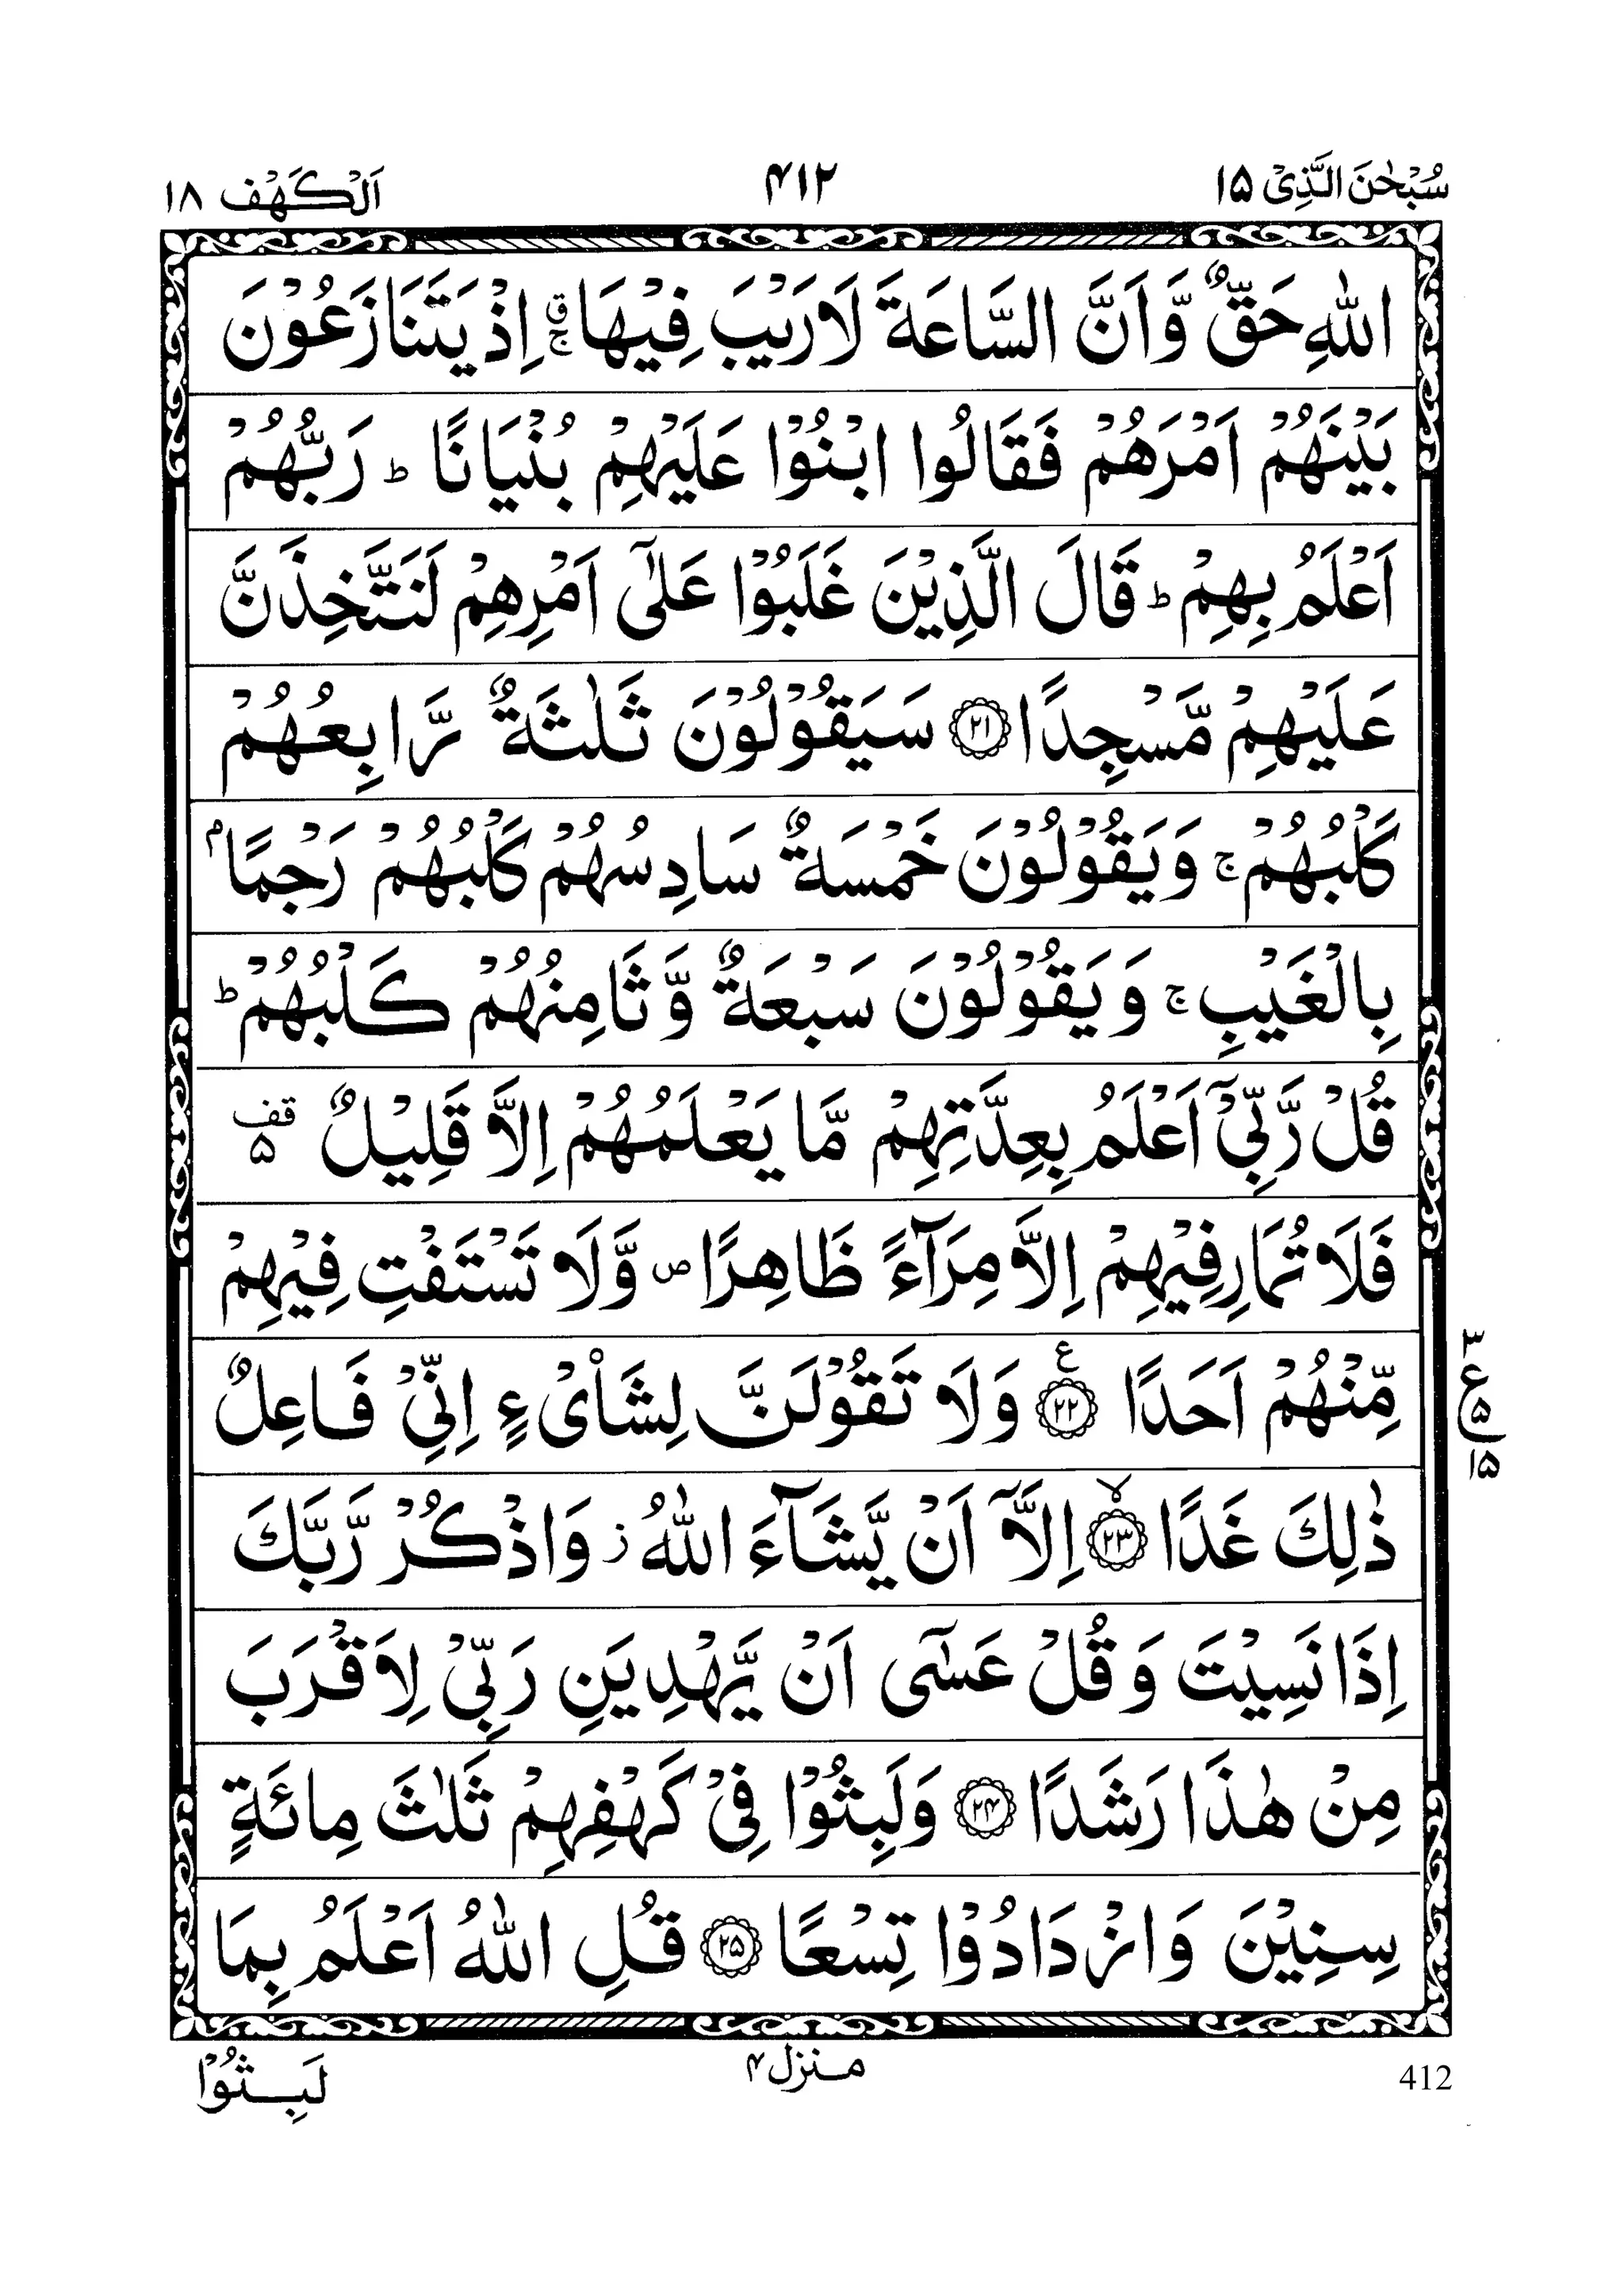 سُبْحٰنَ الَّذِیْ ۱۵
۴۱۲
اَلْكَهْف ۱۸
اللّٰهِ حَقٌّ وَّاَنَّ السَّاعَةَ لَا رَیْبَ فِیْهَا ۚۗ اِذْ یَتَنَازَعُوْنَ
بَیْنَهُمْ اَمْرَهُمْ فَقَالُوا ابْنُوْا عَلَیْهِمْ بُنْیَانًا ؕ رَبُّهُمْ
اَعْلَمُ بِهِمْ ؕ قَالَ الَّذِیْنَ غَلَبُوْا عَلٰۤی اَمْرِهِمْ لَنَتَّخِذَنَّ
عَلَیْهِمْ مَّسْجِدًا ﴿۲۱﴾ سَیَقُوْلُوْنَ ثَلٰثَةٌ رَّابِعُهُمْ
كَلْبُهُمْ ۚ وَیَقُوْلُوْنَ خَمْسَةٌ سَادِسُهُمْ كَلْبُهُمْ رَجْمًۢا
بِالْغَیْبِ ۚ وَیَقُوْلُوْنَ سَبْعَةٌ وَّثَامِنُهُمْ كَلْبُهُمْ ؕ
قُلْ رَّبِّیْۤ اَعْلَمُ بِعِدَّتِهِمْ مَّا یَعْلَمُهُمْ اِلَّا قَلِیْلٌ قف ۵
فَلَا تُمَارِ فِیْهِمْ اِلَّا مِرَآءً ظَاهِرًا ص وَّلَا تَسْتَفْتِ فِیْهِمْ
مِّنْهُمْ اَحَدًا ع ﴿۲۲﴾ وَلَا تَقُوْلَنَّ لِشَاۡیْءٍ اِنِّیْ فَاعِلٌ
۳ ع ۵ ۱۵
ذٰلِكَ غَدًا ۙ﴿۲۳﴾ اِلَّاۤ اَنْ یَّشَآءَ اللّٰهُ ز وَاذْكُرْ رَّبَّكَ
اِذَا نَسِیْتَ وَقُلْ عَسٰۤی اَنْ یَّهْدِیَنِ رَبِّیْ لِاَقْرَبَ
مِنْ هٰذَا رَشَدًا ﴿۲۴﴾ وَلَبِثُوْا فِیْ كَهْفِهِمْ ثَلٰثَ مِائَةٍ
سِنِیْنَ وَازْدَادُوْا تِسْعًا ﴿۲۵﴾ قُلِ اللّٰهُ اَعْلَمُ بِمَا
412
منزل ۴
لَبِثُوْا